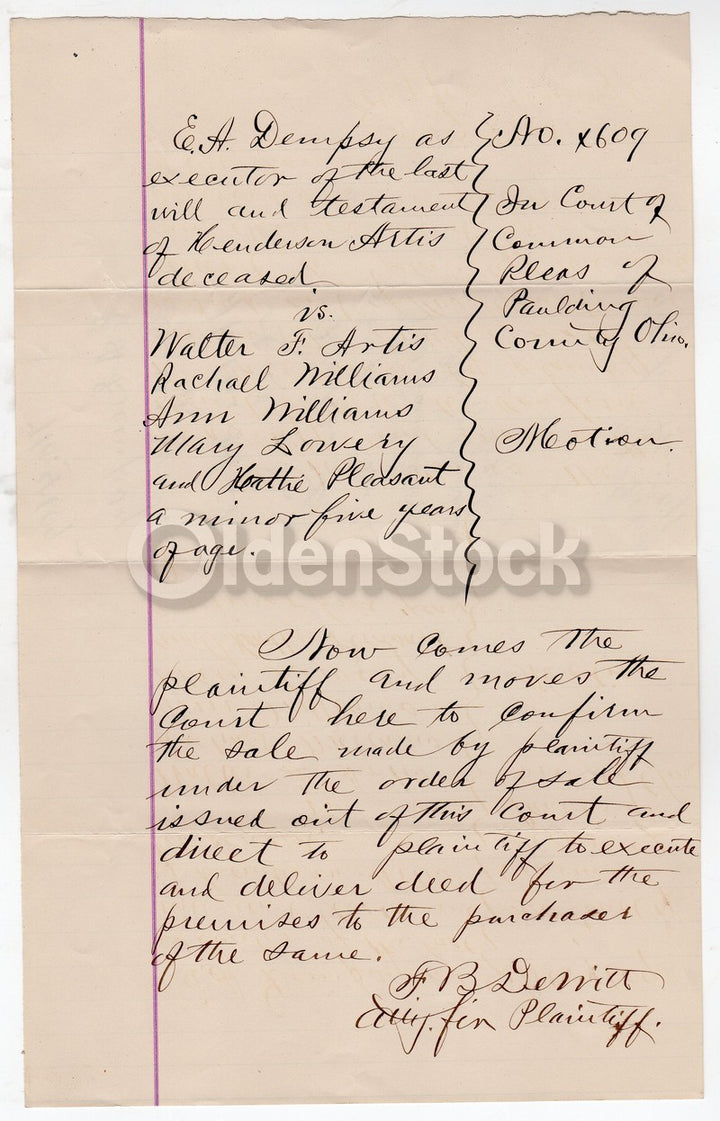 E. A. Dempsy as
executor of the last
will and testament
of Henderson Artis
deceased
vs.
Walter F. Artis
Rachaell Williams
Ann Williams
Mary Lowery
and Hattie Pleasant
a minor five years
of age.
No. 4609
In Court of
Common
Pleas of
Paulding
County Ohio.
Motion.
OldenStock
Now comes the
plaintiff and moves the
Court here to confirm
the sale made by plaintiff
under the order of sale
issued out of this Court and
direct to plaintiff to execute
and deliver deed for the
premises to the purchaser
of the same.
F B DeWitt
Atty. for Plaintiff.